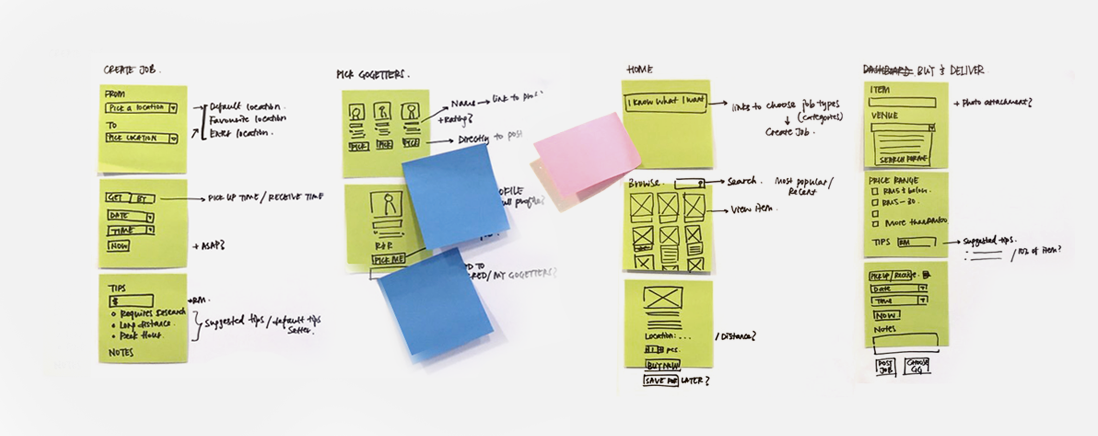 CREATE JOB.
FROM
PICK A LOCATION
TO
PICK LOCATION
Default location.
Favourite location
Enter location.
GET BY
DATE
TIME
NOW
PICK UP TIME / RECEIVE TIME
+ ASAP?
TIPS
$
→RM.
Requires Research
Long distance.
Peak Hour.
Suggested tips / default tips
NOTES
PICK GOGETTERS.
PICK PICK PICK
Name → link to
+Rating?
Directly to
R+R
PICK ME
/ MY GOGETTERS?
HOME
I know what I want
links to choose job types
(categories)
Create Job.
Browse.
Search. Most popular /
Recent
View item.
Location: ...
/ Distance?
pcs.
BUY NOW
SAVE FOR LATER?
DASHBOARD. BUY & DELIVER
ITEM
+ Photo attachment?
VENUE
PRICE RANGE
RM5 & below.
RM5 - 20.
More than
TIPS RM
Suggested tips.
/ 10% of item?
PICKUP / Receive.
Date
Time
NOW
Notes
POST JOB
CHOOSE GG